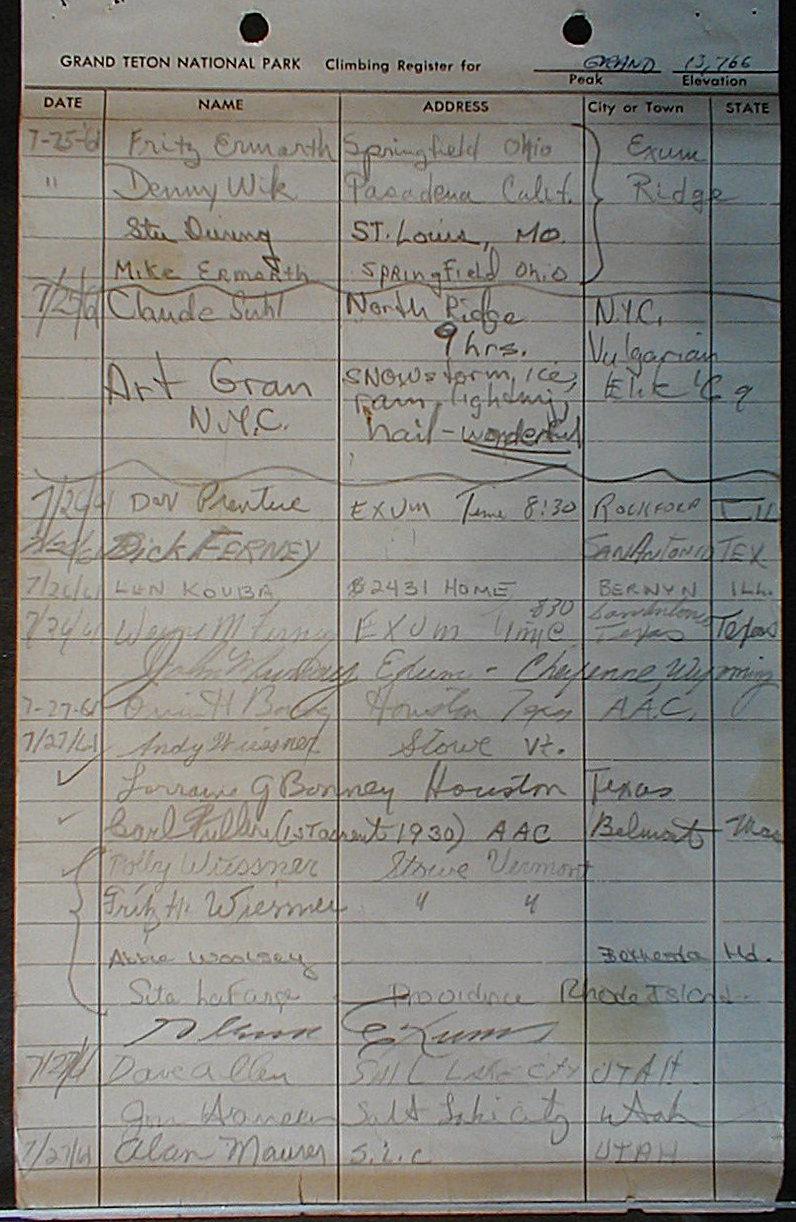 GRAND TETON NATIONAL PARK Climbing Register for GRAND 13,766
Peak Elevation
DATE NAME ADDRESS City or Town STATE
7-25-61 Fritz Ermarth Springfield Ohio Exum
" Denny Wik Pasadena Calif. Ridge
Stu During ST. Louis, MO.
Mike Ermarth Springfield Ohio
7/25/61 Claude Suhl North Ridge N.Y.C.
9 hrs. Vulgarian
Art Gran SNOWstorm, ice,
N.Y.C. rain, lightning,
hail - wonderful
7/26/61 Prentice EXUM Time 8:30 ROCKFORD Ill
Dick FERNEY SAN ANTONIO TEX
7/26/61 LEN KOUBA 2431 HOME BERWYN ILL.
7/26/61 Wayne M Ferney EXUM Time 830 San Antonio Texas Texas
John Exum - Cheyenne, Wyoming
7-27-61 Orrin H Bonney Houston Texas A.A.C.
7/27/61 Andy Wiessner Stowe Vt.
✓ Lorraine G Bonney Houston Texas
✓ Carl Fuller (1st ascent 1930) AAC Belmont Mass
Polly Wiessner Stowe Vermont
Fritz H. Wiessner " "
Woolsey Bethesda Md.
LaFarge Providence Rhode Island.
Glenn Exum
7/27/61 Dave Allen Salt Lake City UTAH
Salt Lake City Utah
7/27/61 Alan Maurer S.L.C UTAH